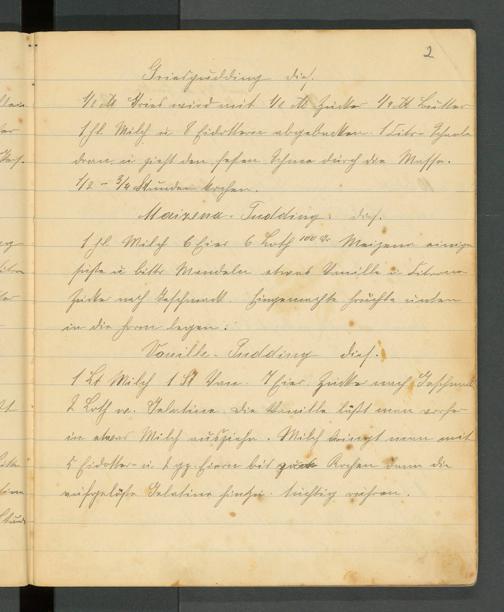 2
Griespudding dies.
1/2 ℔ Gries wird mit 1/2 ℔ Zucker 1/4 ℔ Butter
1 Milch u 8 Eidottern abgebacken. 1 Citr. Schale
dran u zieht den festen Schnee durch die Masse.
1/2 - 3/4 Stunden kochen.
Maizena-Pudding. dies.
1 Milch 6 Eier 6 Loth 100 Gr. Maizena einige
süsse u bittr Mandeln etwas Vanille u Citrone
Zucker nach Geschmack. Eingemachte Früchte unten
in die Form legen.
Vanille-Pudding dies.
1 Lt Milch 1 St Van. 7 Eier Zucker nach Geschmack
2 Loth Gelatine. Die Vanille läßt man vorher
in etwas Milch ausziehn. Milch bringt man mit
5 Eidotter u 2 gz. Eiern bis zum Kochen dann die
aufgelöste Gelatine hinzu. tüchtig rühren.